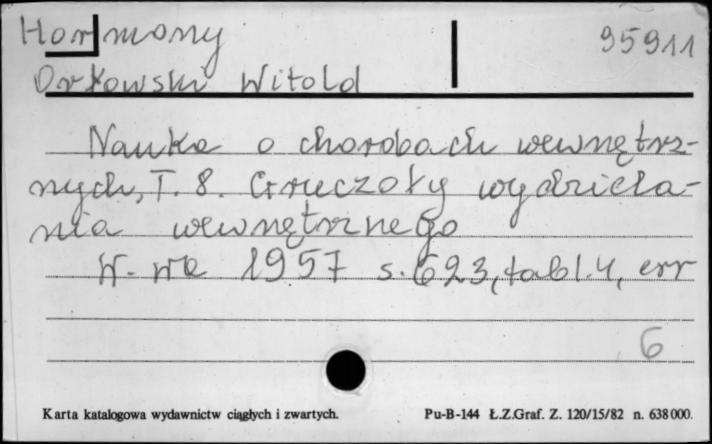 Hormony 95911
Orłowski Witold
Nauka o chorobach wewnętrz-
nych, T. 8. Gruczoły wydziela-
nia wewnętrznego
W-wa 1957 s. 623, tabl. 4, err
6
Karta katalogowa wydawnictw ciągłych i zwartych. Pu-B-144 Ł.Z.Graf. Z. 120/15/82 n. 638 000.